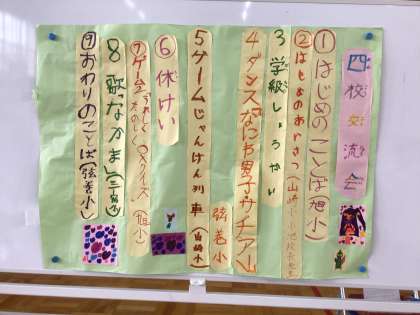 四校交流会
①はじめのことば(旭小)
②はじめのあいさつ(山崎小
3学級しょうかい
4ダンスなにわ男子サチアレ
弦巻小
5ゲームじゃんけん列車(山崎小)
⑥休けい
⑦ゲーム2うれしくたのしく〇×クイズ(旭小)
8歌なかま
⑨おわりのことば(弦巻小)